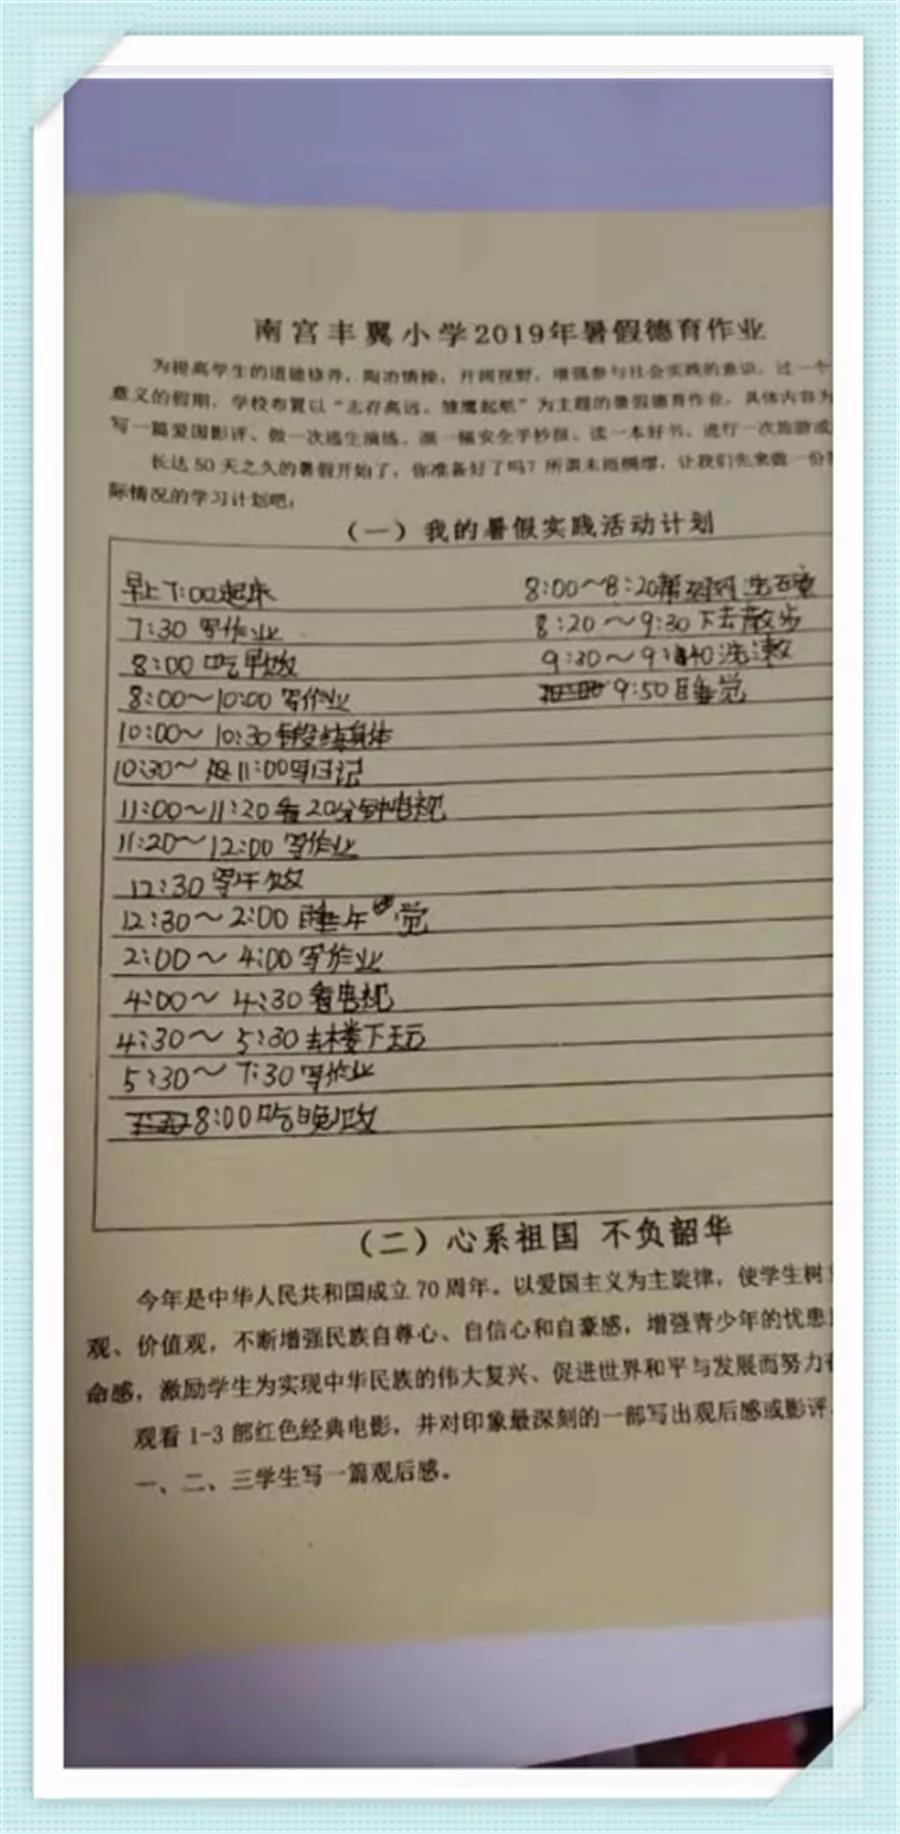 南宫丰翼小学2019年暑假德育作业
为提高学生的道德修养，陶冶情操，开阔视野，增强参与社会实践的意识，过一个
意义的假期，学校布置以“志存高远，雏鹰起航”为主题的暑假德育作业，具体内容为
写一篇爱国影评、做一次逃生演练、画一幅安全手抄报、读一本好书、进行一次旅游或
长达50天之久的暑假开始了，你准备好了吗？所谓未雨绸缪，让我们先来做一份
际情况的学习计划吧：
（一）我的暑假实践活动计划
早上7:00起床
7:30 写作业
8:00 吃早饭
8:00～10:00 写作业
10:00～10:30锻练身体
10:30～11:00写日记
11:00～11:20看20分钟电视
11:20～12:00 写作业
12:30 午饭
12:30～2:00 睡午觉
2:00～4:00 写作业
4:00～4:30看电视
4:30～5:30去楼下玩
5:30～7:30写作业
8:00吃晚饭
8:00～8:20帮妈妈洗
8:20～9:30下去散步
9:30～9:40洗漱
9:50睡觉
（二）心系祖国 不负韶华
今年是中华人民共和国成立70周年。以爱国主义为主旋律，使学生树
观、价值观，不断增强民族自尊心、自信心和自豪感，增强青少年的忧患
命感，激励学生为实现中华民族的伟大复兴、促进世界和平与发展而努力
观看1-3部红色经典电影，并对印象最深刻的一部写出观后感或影评
一、二、三学生写一篇观后感。